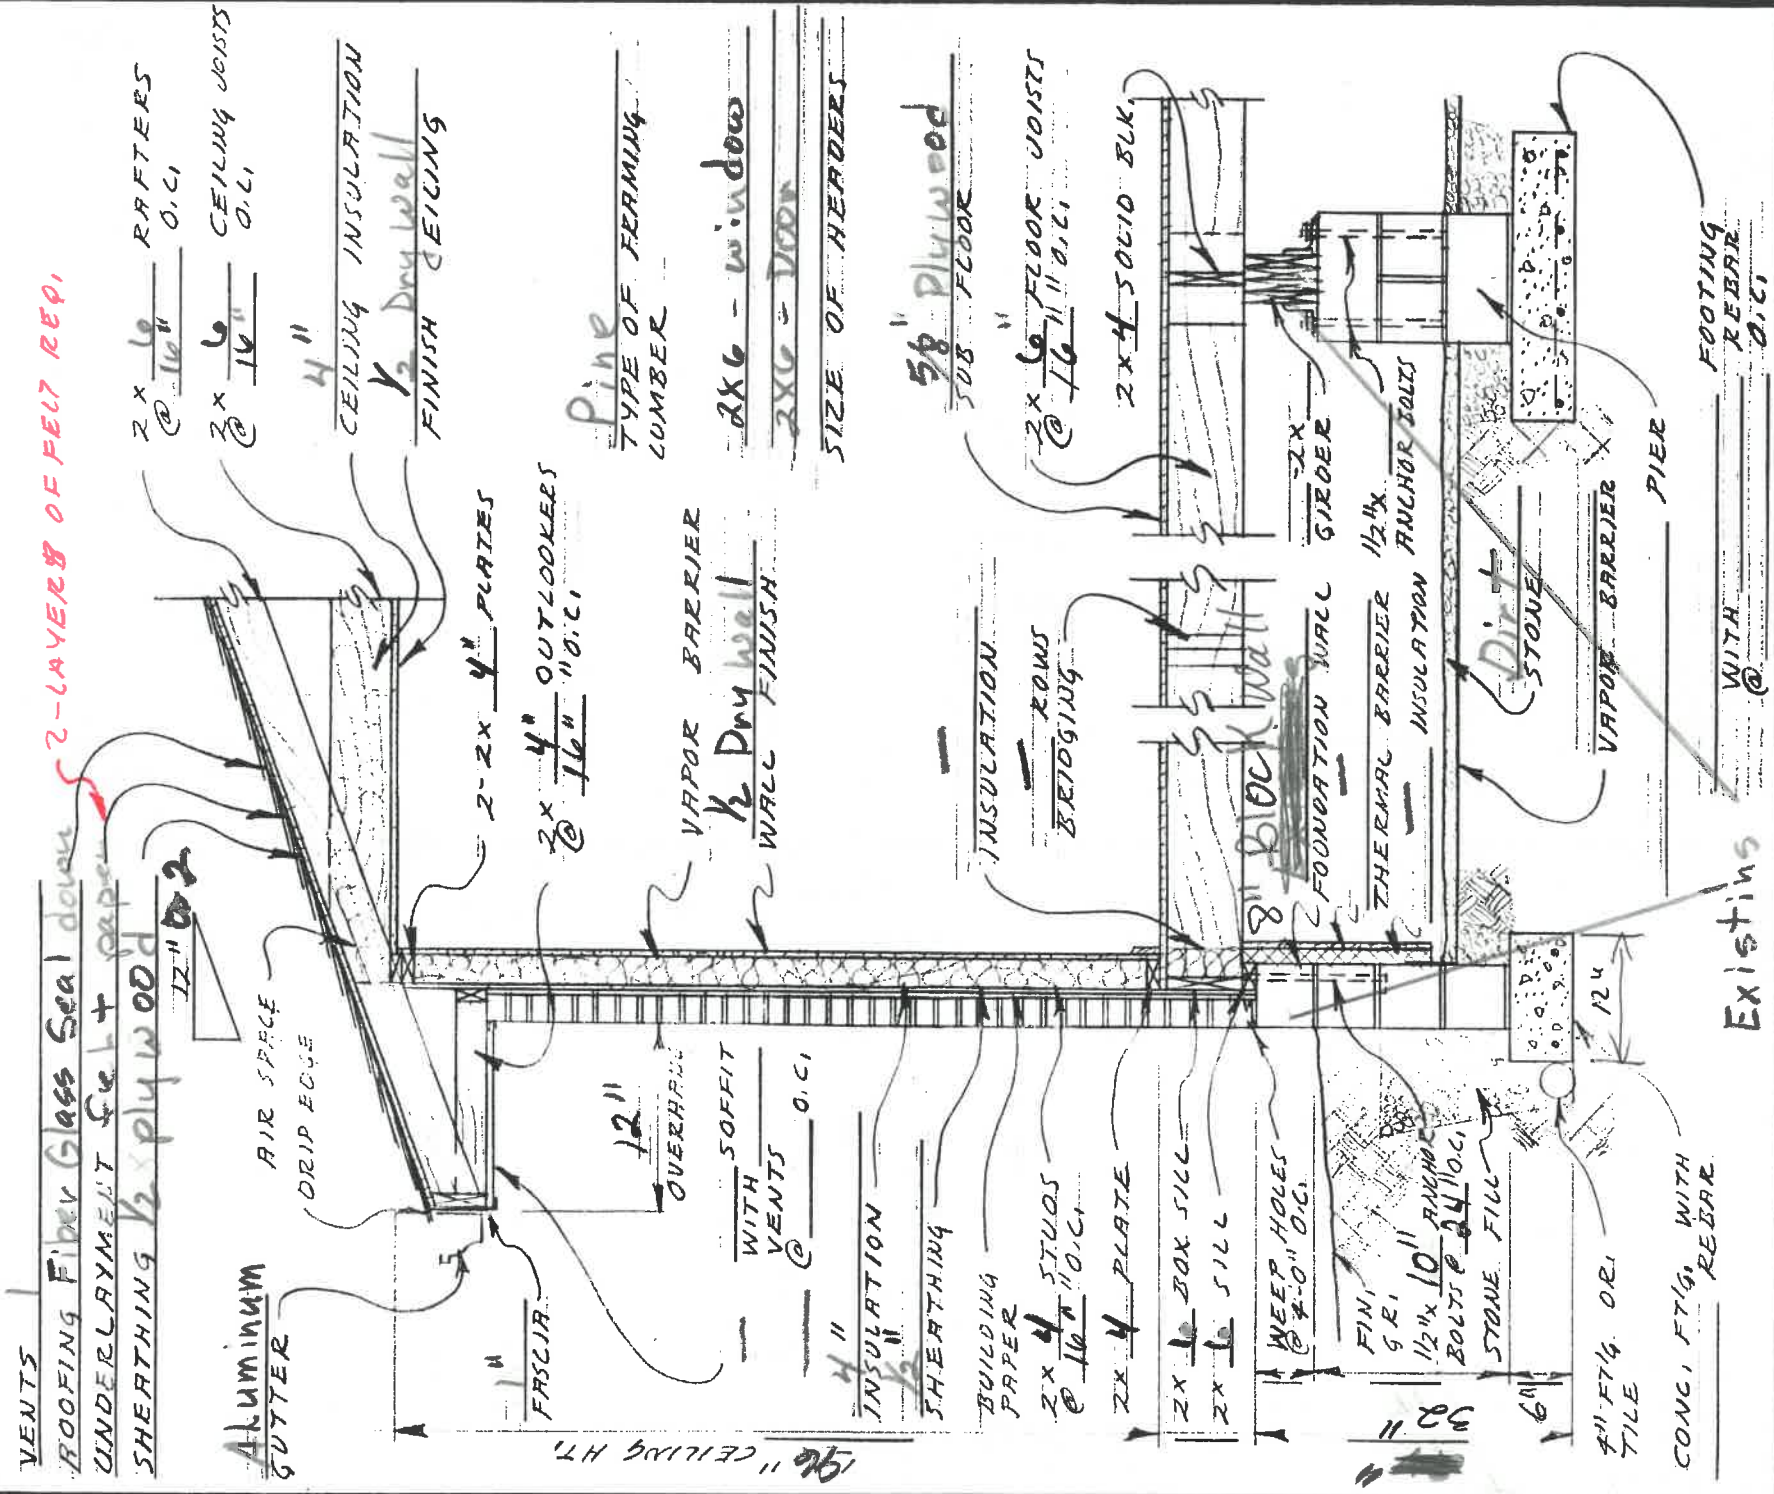 VENTS
ROOFING Fiber Glass Seal down
UNDERLAYMENT felt paper
SHEATHING 1/2 x plywood
2-LAYERS OF FELT REQ.
12"
2
AIR SPACE
DRIP EDGE
Aluminum
GUTTER
1"
FASCIA
12"
OVERHANG
SOFFIT
WITH
VENTS
@ O.C.
4"
INSULATION
1/2"
SHEATHING
BUILDING
PAPER
2 x 4 STUDS
@ 16" O.C.
2 x 4 PLATE
2 x 6 BOX SILL
2 x 6 SILL
WEEP HOLES
@ 4'-0" O.C.
FIN.
GR.
1/2" x 10" ANCHOR
BOLTS @ 24" O.C.
STONE FILL
4" FT'G. DR.
TILE
CONC. FT'G. WITH
REBAR
96" CEILING HT.
32"
6"
12"
2 x 6 RAFTERS
@ 16" O.C.
2 x 6 CEILING JOISTS
@ 16" O.C.
4"
CEILING INSULATION
1/2 Dry wall
FINISH CEILING
2-2x 4" PLATES
2 x 4" OUTLOOKERS
@ 16" O.C.
Pine
TYPE OF FRAMING
LUMBER
2x6 - window
2x6 - Door
SIZE OF HEADERS
VAPOR BARRIER
1/2 Dry wall
WALL FINISH
5/8" Plywood
SUB FLOOR
2 x 6" FLOOR JOISTS
@ 16" O.C.
2 x 4 SOLID BLK.
INSULATION
ROWS
BRIDGING
8" Block Wall
FOUNDATION WALL
THERMAL BARRIER
INSULATION
-2x
GIRDER
1/2"x
ANCHOR BOLTS
Dirt
STONE
VAPOR BARRIER
PIER
FOOTING
WITH REBAR
@ O.C.
Existing